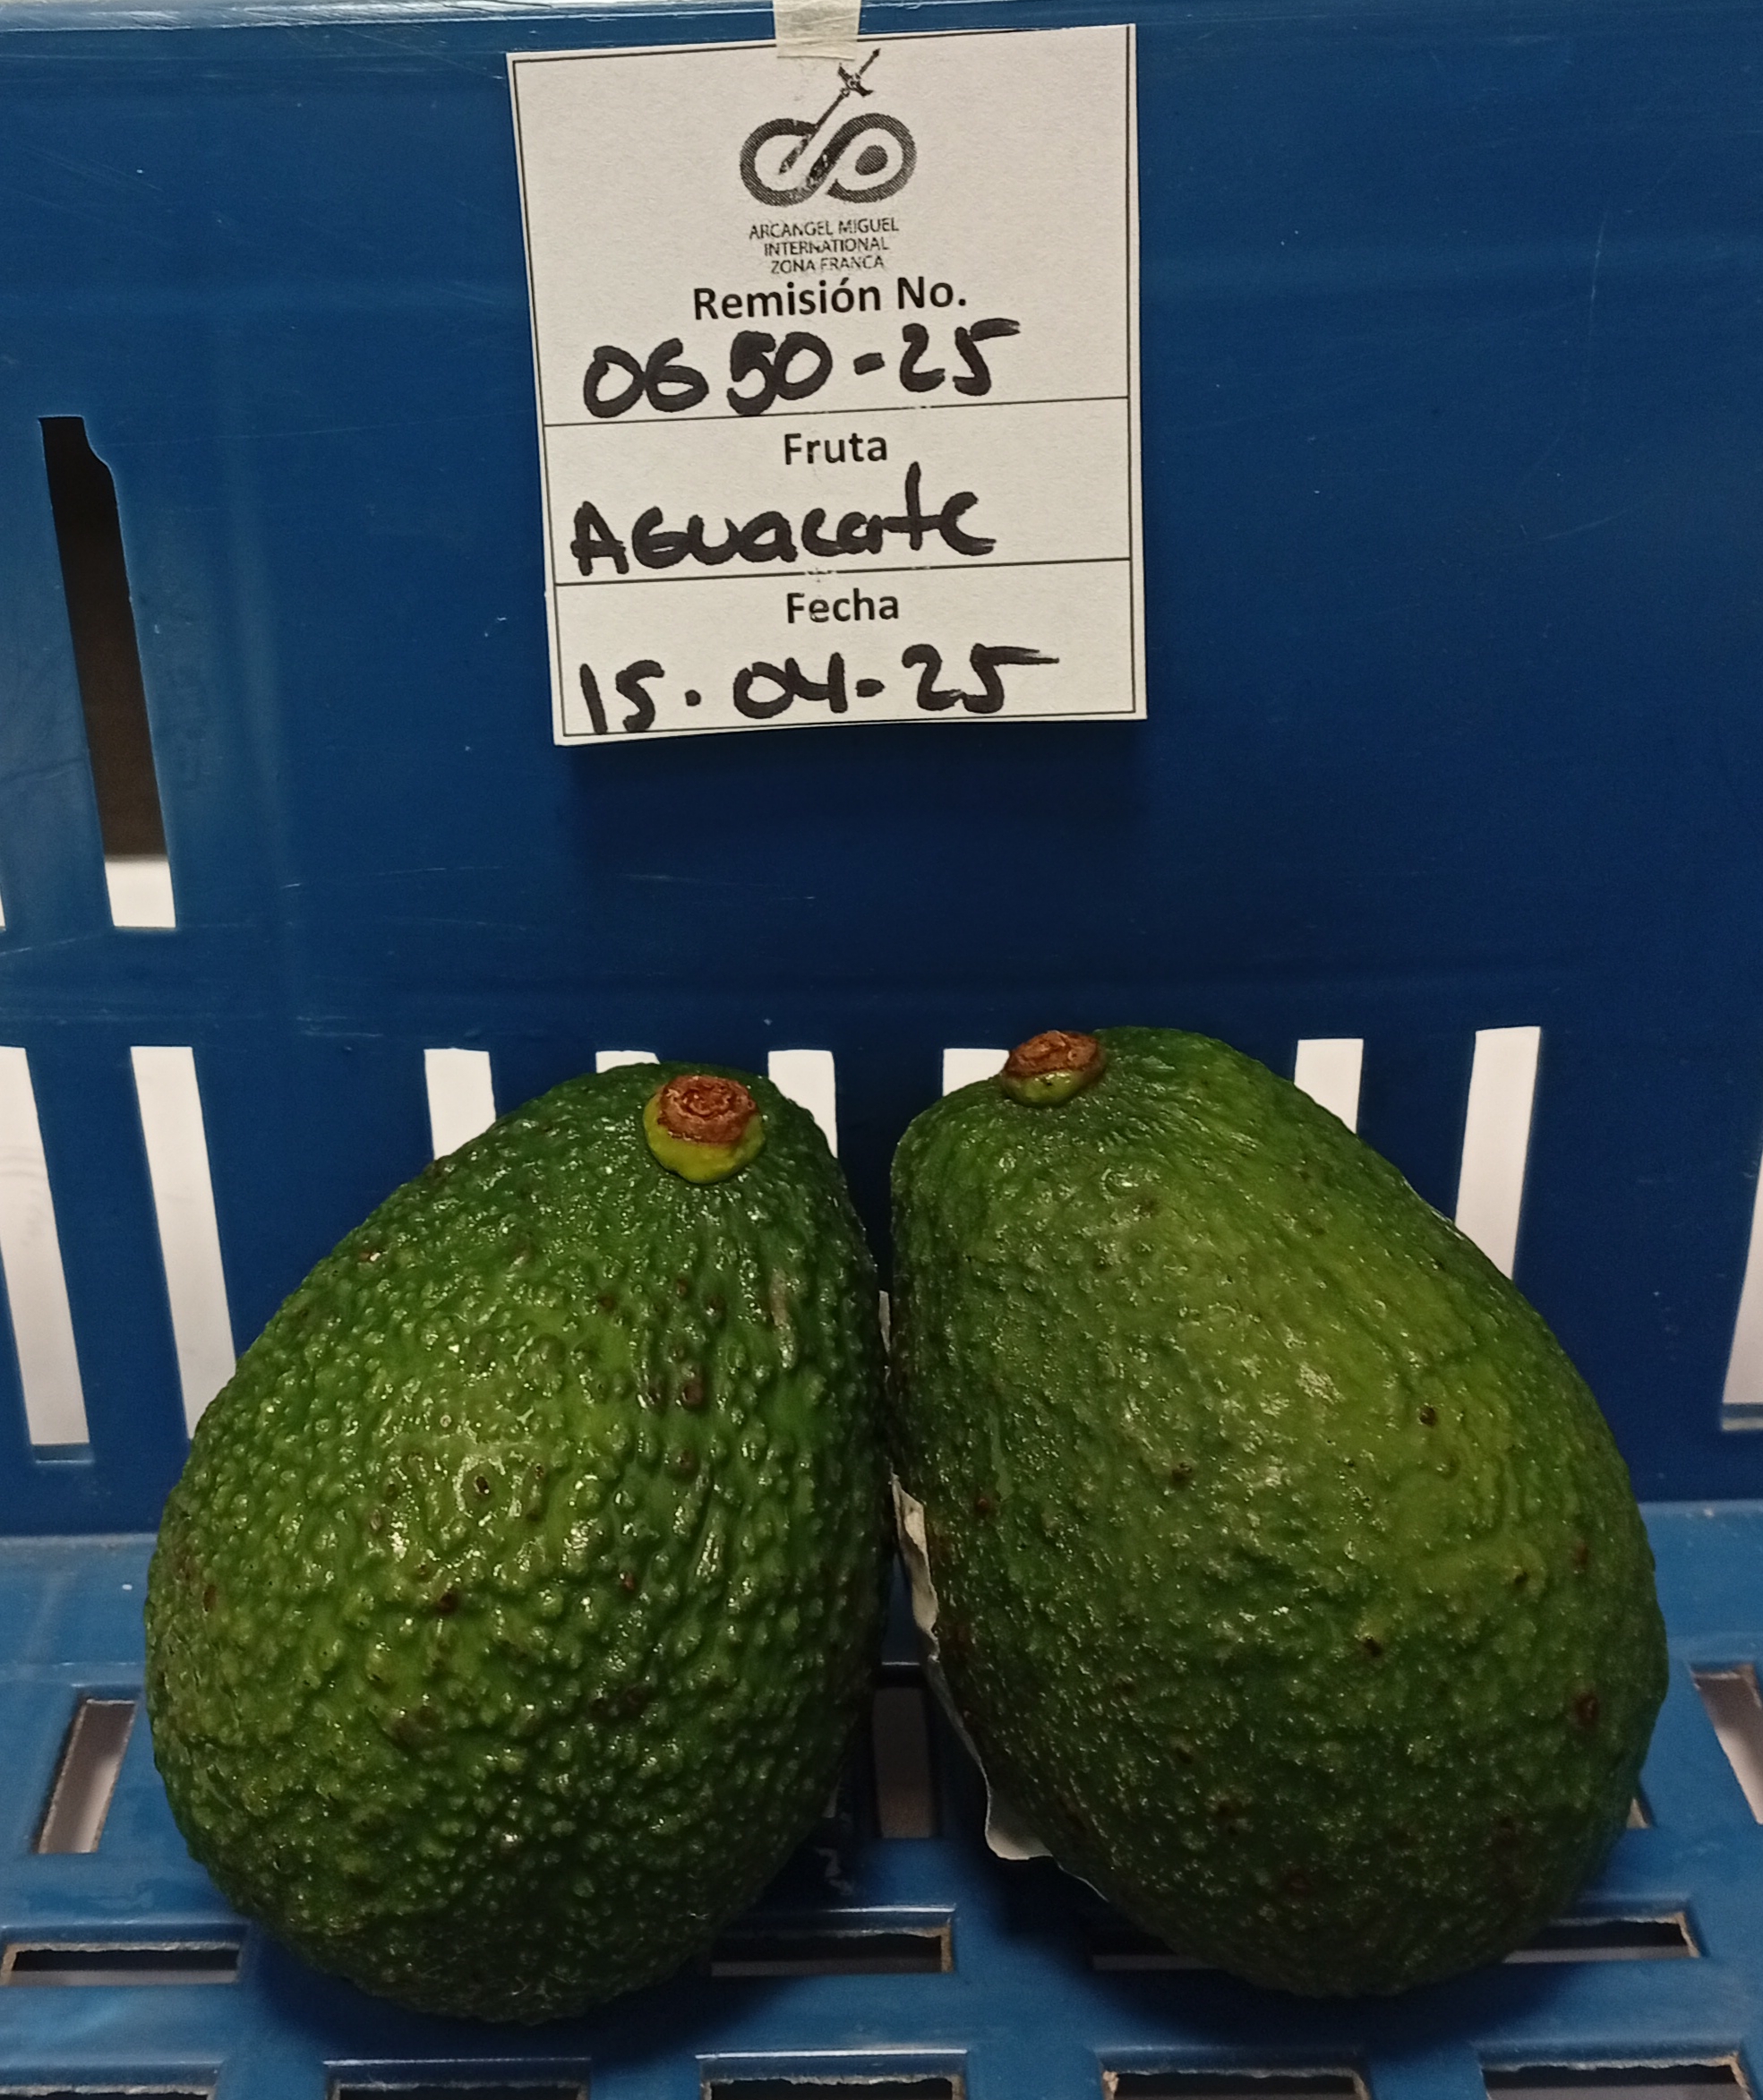 ARCANGEL MIGUEL
INTERNATIONAL
ZONA FRANCA
Remisión No.
0650-25
Fruta
AGuacate
Fecha
15.04-25